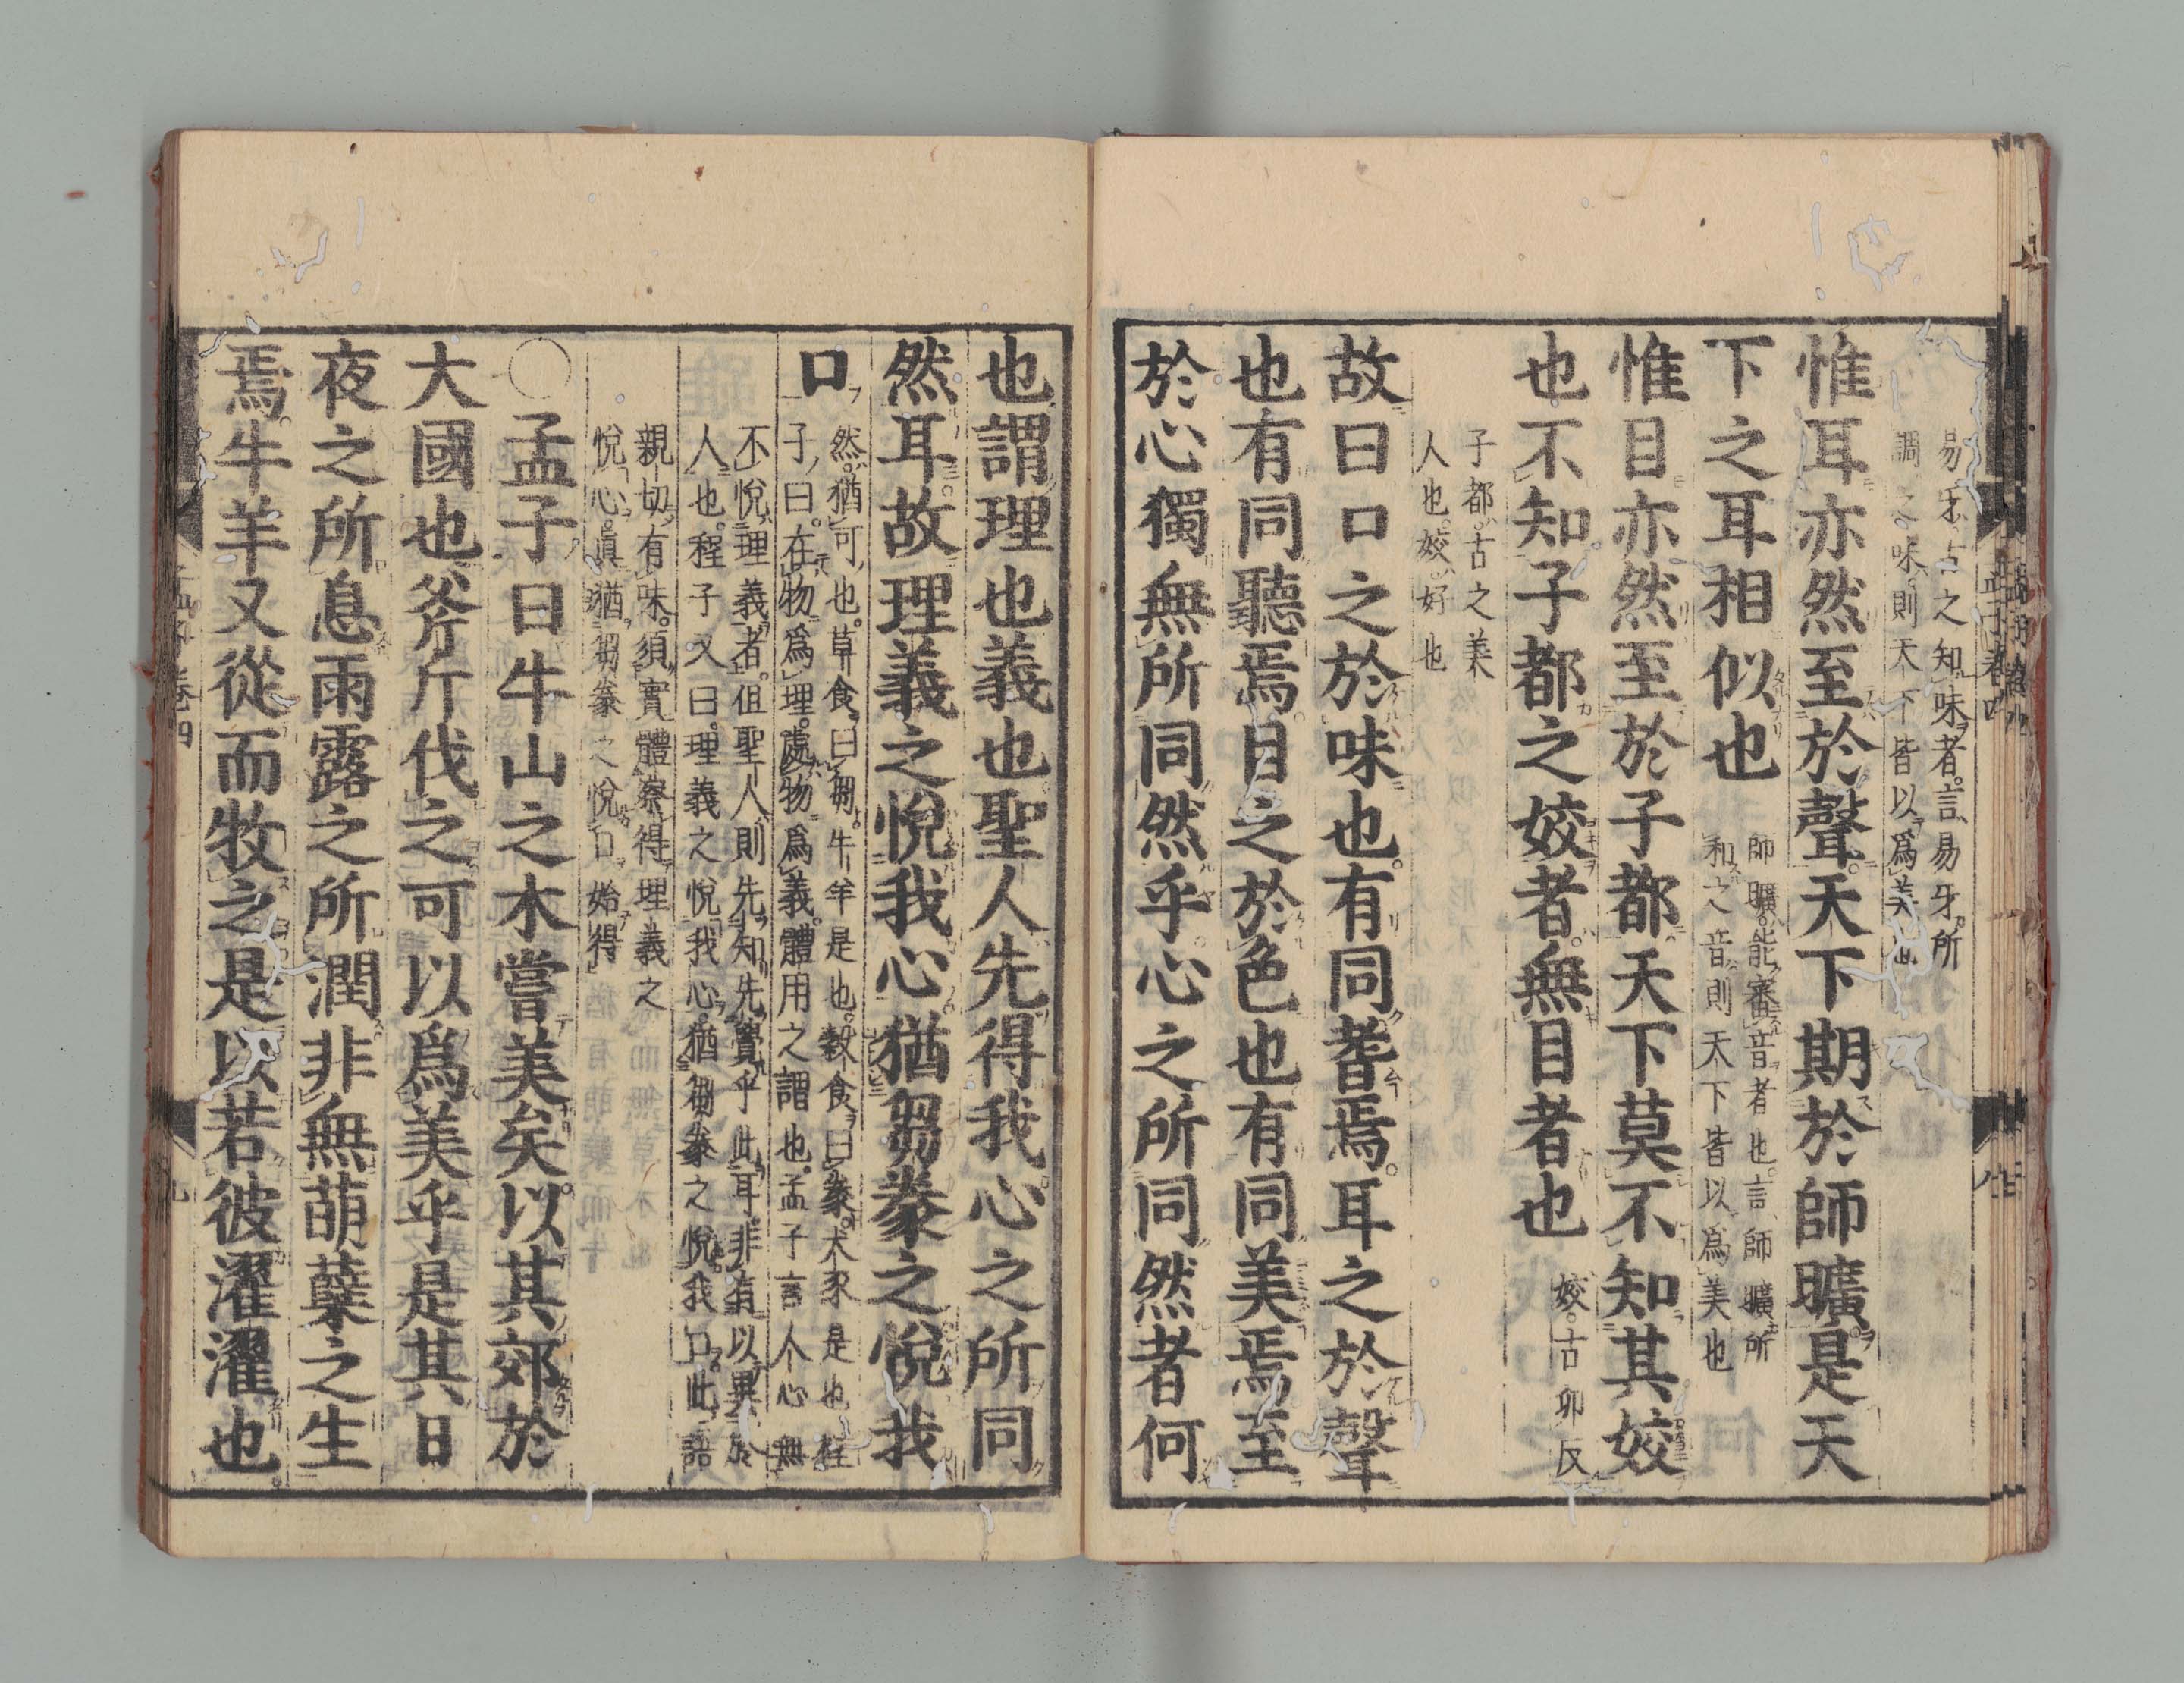 易牙古之知味者言易牙所
調之味則天下皆以爲美也
惟耳亦然至於聲天下期於師曠是天
下之耳相似也
師曠能審音者也言師曠所
和之音則天下皆以爲美也
惟目亦然至於子都天下莫不知其姣
也不知子都之姣者無目者也
姣古卯反
子都古之美
人也姣好也
故曰口之於味也有同耆焉耳之於聲
也有同聽焉目之於色也有同美焉至
於心獨無所同然乎心之所同然者何
也謂理也義也聖人先得我心之所同
然耳故理義之悅我心猶芻豢之悅我
口
然猶可也草食曰芻牛羊是也穀食曰豢犬豕是也程
子曰在物爲理處物爲義體用之謂也孟子言人心無
不悅理義者但聖人則先知先覺乎此耳非有以異於
人也程子又曰理義之悅我心猶芻豢之悅我口此語
親切有味須實體察得理義之
悅心真猶芻豢之悅口始得
○孟子曰牛山之木嘗美矣以其郊於
大國也斧斤伐之可以爲美乎是其日
夜之所息雨露之所潤非無萌蘖之生
焉牛羊又從而牧之是以若彼濯濯也
孟子卷四
九